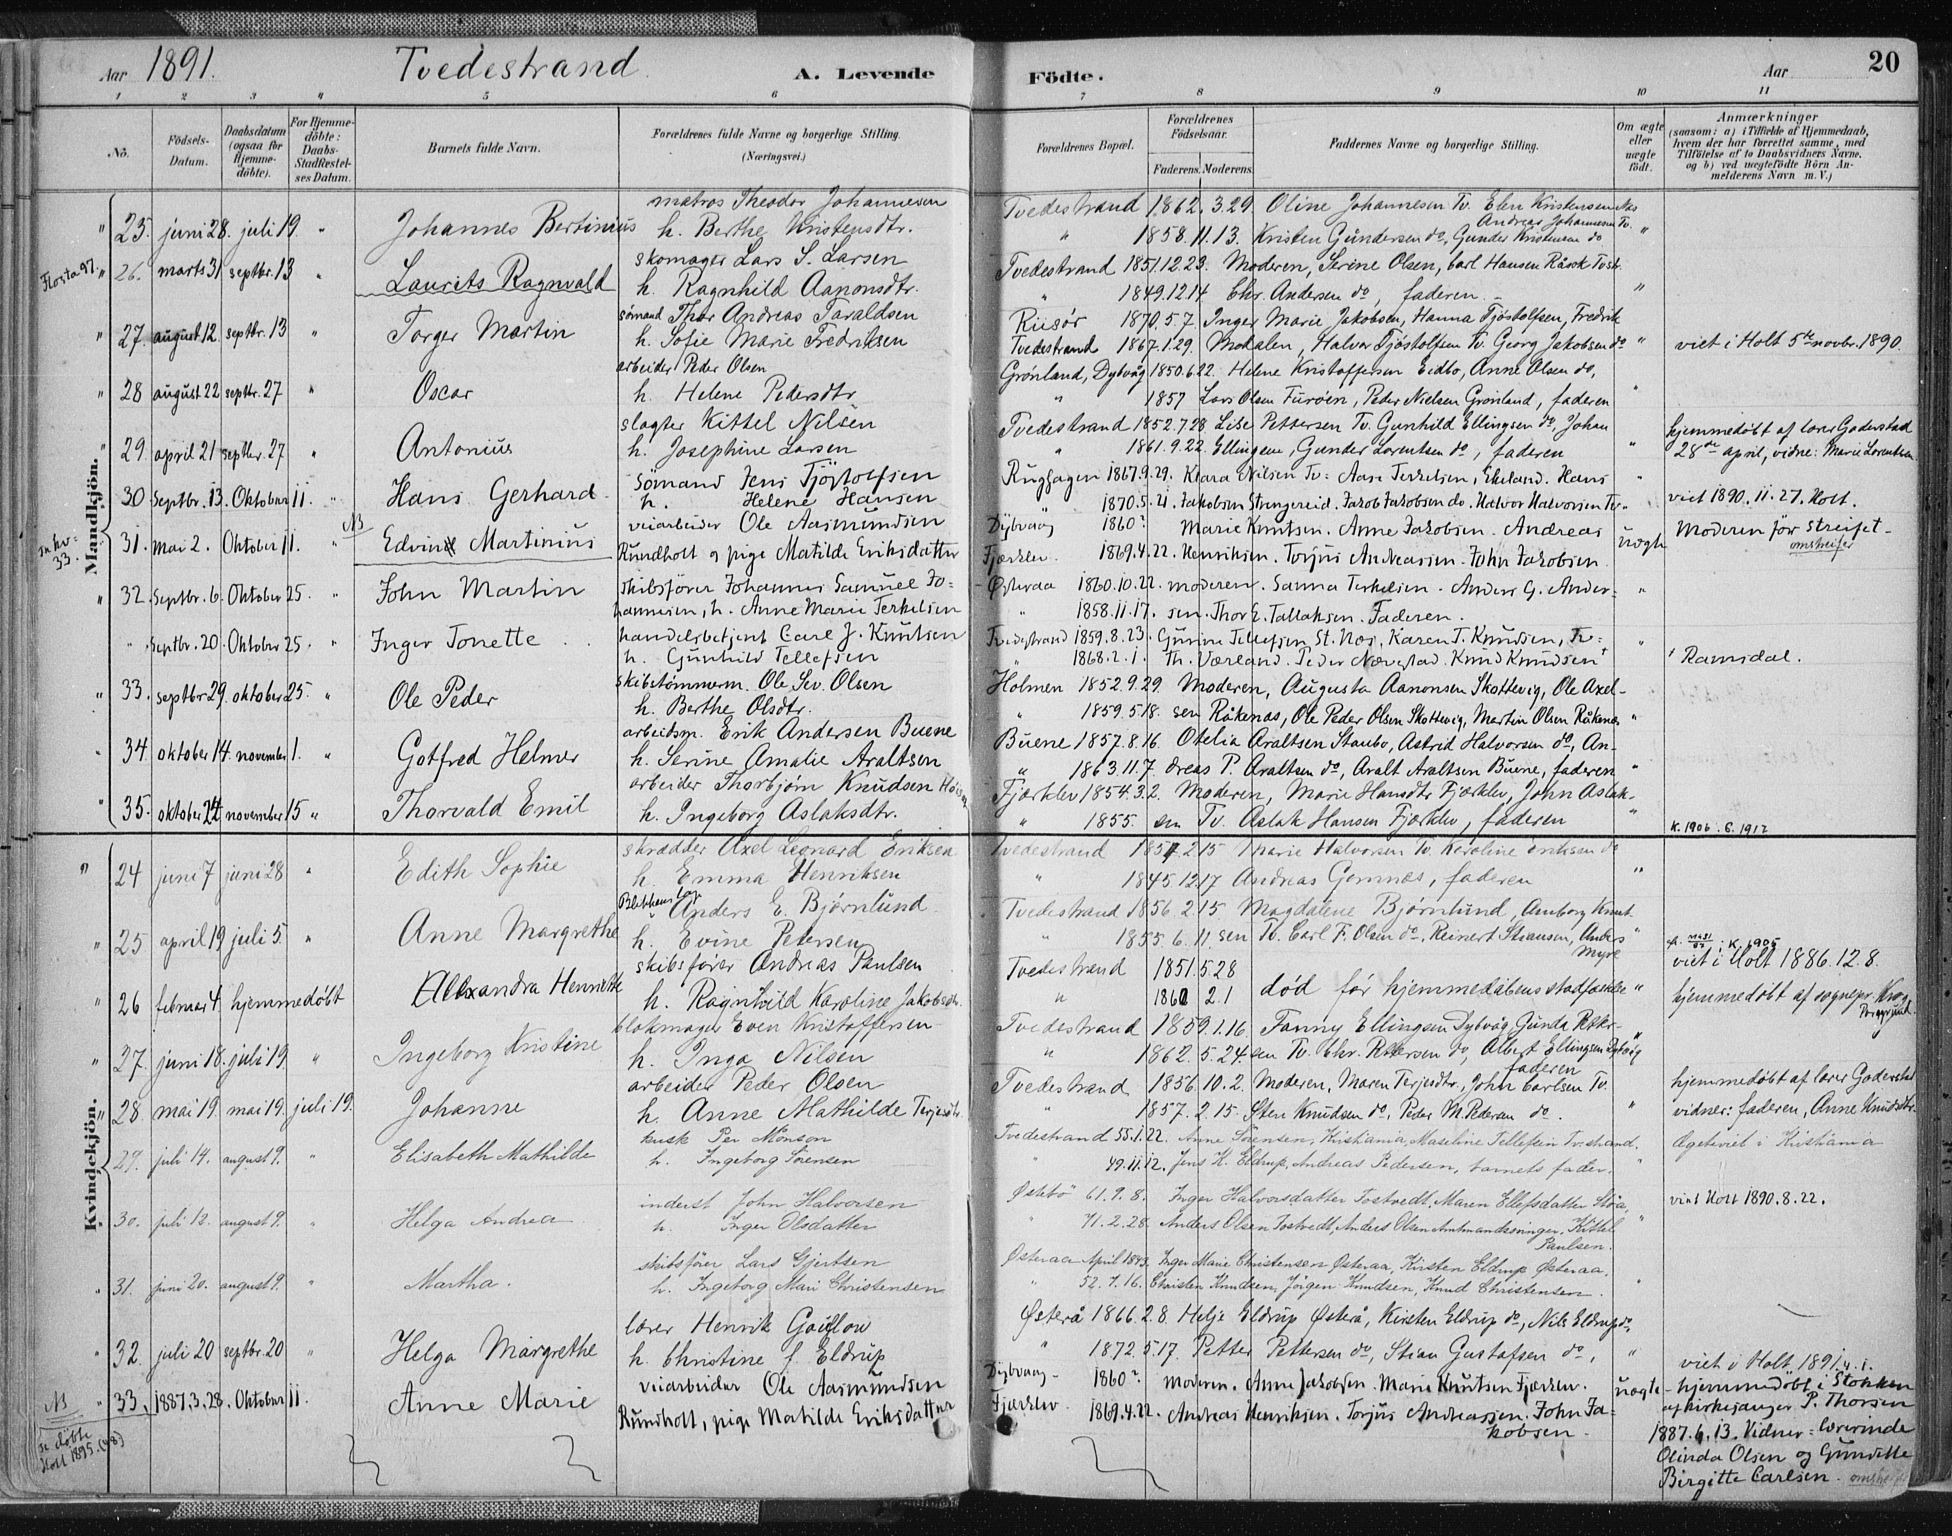 Aar 1891. Tvedestrand. A. Levende Födte. Aar 20
1 2 3 4 5 6 7 8 9 10 11
No. Födsels-Datum. Daabsdatum (ogsaa før Hjemme-døbte). For Hjemme-döbte: Daabs-Stadfæstel-ses Datum. Barnets fulde Navn. Forældrenes fulde Navne og borgerlige Stilling. (Næringsvei.) Forældrenes Bopæl. Forældrenes Födselsaar. Faderens. Moderens. Faddernes Navne og borgerlige Stilling. Om ægte eller uægte födt. Anmærkninger (saasom: a) i Tilfælde af Hjemmedaab, hvem der har forrettet samme, med Tilföielse af to Daabsvidners Navne, og b) ved uægtefödte Börn An-melderens Navn m. V.)
Mandkjön.
matros Theodor Johannesen Tvedestrand 1862.3.29 Oline Johannesen Tv. Elen Kristensen Næs
23. juni 28. juli 19. " Johannes Bertinius h. Berthe Kristensdtr. " 1858.11.13. Kristen Gundersen do, Gunder Kristensen do Andreas Johannesen Tv. "
Flosta 97. skomager Lars S. Larsen Tvedestrand 1851.12.23. Moderen, Serine Olsen, Carl Hansen
26. marts 31 septbr. 13 " Laurits Ragnvald h. Ragnhild Aanonsdtr. " 1849.12.14. Chr. Andersen do, faderen. "
sømand Thor Andreas Taraldsen Riisør 1870.5.7. Inger Marie Jakobsen, Hanna Tjöstolfsen, Fredrik
27. august 12. septbr. 13 " Torger Martin h. Sofie Marie Fredriksen Tvedestrand 1867.1.29. Modalen, Halvor Tjöstolfsen Tv. Georg Jakobsen do " viet i Holt 5te novbr. 1890.
arbeider Peder Olsen Grønland, Dybvåg 1850.6.22. Helene Kristoffersen Eidbo, Anne Olsen do,
28 august 22 septbr. 27 " Oscar h. Helene Pedersdtr " 1857 Lars Olsen Furøen, Peder Nielsen Grønland, faderen "
slagter Kittel Nilsen Tvedestrand 1852.7.28 Lise Pettersen Tv. Gunhild Ellingsen do, Johan hjemmedøbt af lærer Goderstad
29. april 21 septbr. 27 " Antonius h. Josephine Larsen " 1861.9.22. Ellingsen, Gunder Lorentsen do, faderen " 28de april, vidne: Marie Lorentsen
Sömand Jens Tjöstolfsen 1867.9.29. Klara Nilsen Tv: Aase Terkelsen, Ekeland. Hans
30. Septbr. 13. Oktober 11. " Hans Gerhard. h. Helene Hansen 1870.5.21. Jakobsen Strengereid. Jakob Jakobsen do. Halvor Halvorsen Tv. " viet 1890.11.27. Holt.
NB veiarbeider Ole Aasmundsen Dybvaag 1860? Marie Knutsen. Anne Jakobsen. Andreas
33. 31. Mai 2. Oktober 11. " Edvin Martinius Rundholt og pige Matilde Eriksdatter Fjærklev. 1869.4.22. Henriksen. Torjus Andreassen. John Jakobsen. uægte Moderen för streifet - omstreifer
Skibsförer Johannes Samuel Jo= Østeraa 1860.10.22. moderen. Sanna Terkelsen. Anders G. Ander=
32. Septbr. 6. Oktober 25. " John Martin hannesen, h. Anne Marie Terkelsen " 1858.11.17. sen. Thor E. Tallaksen. Faderen. "
handelsbetjent Carl J. Knutsen Tvedestrand 1859.8.23. Gurine Tellefsen St. Næs. Karen T. Knudsen, Tv=
" Septbr. 20. Oktober 25. " Inger Tonette h. Gunhild Tellefsen " 1868.2.1. Th. Værland. Peder Næverstad. Knud Knudsen " Ramsdal.
skibstømmerm. Ole Sev. Olsen Holmen 1852.9.29. Moderen, Augusta Aanonsen Skottevig, Ole Axel-
33. septbr 29. oktober 25. " Ole Peder h. Berthe Olsdtr. " 1859.5.18. sen Råkenæs, Ole Peder Olsen Skottevig, Martin Olsen Råkenæs "
arbeidsm. Erik Andersen Buene Buene 1857.8.16. Otelia Araltsen Staubo, Astrid Halvorsen do, An-
34. oktober 14. november 1. " Gotfred Helmer h. Serine Amalie Araltsen " 1863.11.7. dreas P. Araltsen do, Aralt Araltsen Buene, faderen "
arbeider Thorbjørn Knudsen Fjærklev 1854.3.2. Moderen, Marie Hansdtr Fjærklev, John Aslak-
35. oktober 24 november 15 " Thorvald Emil h. Ingeborg Aslaksdtr. " 1855. sen Tv. Aslak Hansen Fjærklev, faderen "
K. 1906. 6. 1912
Kvindekjön.
skrædder Axel Leonard Eriksen Tvedestrand 1854.2.15 Marie Halvorsen Tv. Karoline Eriksen do
24 juni 7 juni 28 " Edith Sophie h. Emma Henriksen " 1845.12.17 Andreas Gomnæs, faderen "
Anders E. Bjørnlund Tvedestrand 1856.2.15 Magdalene Bjørnlund, Amborg Knut-
25 april 19 juli 5. " Anne Margrethe h. Evine Petersen " 1855.6.11. sen Tv. Carl F. Olsen do, Reinert Staansen, Anders Myre " K. 1905
skibsfører Andreas Paulsen Tvedestrand 1851.5.28 viet i Holt 1886.12.8.
26 februar 4. hjemmedøbt Alexandra Henriette h. Ragnhild Karoline Jakobsdtr. " 1860 2.1 død før hjemmedåbens stadfæstelse " hjemmedøbt af sognepr. Krog
blokmager Even Kristoffersen Tvedestrand 1859.1.16 Fanny Ellingsen Dybvåg, Gunda Petter-
27. juni 18. juli 19. " Ingeborg Kristine h. Inga Nilsen " 1862.5.24. sen Tv. Chr. Pettersen do, Albert Ellingsen Dybvåg faderen "
arbeider Peder Olsen Tvedestrand 1856.10.2. Moderen, Maren Terjesdtr., John Carlsen Tv. hjemmedøbt af lærer Goderstad
28. mai 19. mai 19. juli 19. Johanne h. Anne Mathilde Terjesdtr. " 1857.2.15. Sten Knudsen do, Peder M. Pedersen do. " vidner: faderen, Anne Knudsdtr.
kusk Per Mönson Tvedestrand 55.1.22. Anne Sörensen, Kristiania, Maseline Tellefsen Tvestrand. Ægteviet i Kristiania
29. juli 14. august 9. " Elisabeth Mathilde h. Ingeborg Sörensen " 49.11.12. Jens K. Eldrup, Andreas Pedersen, barnets fader. "
inderst John Halvorsen Østebö 61.9.8. Inger Halvorsdatter Tostvedt, Maren Ellefsdatter viet Holt 1890.8.22.
30. juli 12. august 9. " Helga Andrea h. Inger Olsdatter " 71.2.28. Anders Olsen Tostvedt, Anders Olsen Amtmandssvinger, Kittel Paulsen. "
skibsförer Lars Gjertsen Østeraa April 1843. Inger Marie Christensen Østeraa, Kirsten Eldrup Østeraa.
31. juni 20. august 9. " Martha. h. Ingeborg Mari Christensen " 52.7.16. Christen Knudsen, Jörgen Knudsen, Knud Christensen. "
lærer Henrik Østerå 1866.2.8. Helje Eldrup Østerå, Kirsten Eldrup do, Nils Eldrup do,
32. juli 20 septbr. 20 " Helga Margrethe h. Christine f. Eldrup " 1872.5.17. Petter Pettersen do, Stian Gustafsen do, " viet i Holt 1891.4.1.
NB veiarbeider Ole Aasmundsen Dybvaag - 1860? moderen. Anne Jakobsen. Marie Knutsen Fjærklev. uægte - hjemmedöbt i Stokken
33. 1887.3.28. Oktober 11. Anne Marie Rundholt, pige Matilde Eriksdatter Fjærklev. 1869.4.22. Andreas Henriksen. Torjus Andreassen. John Ja- af kirkesanger P. Thorsen
se døbte Holt 1895. (48) kobsen. 1887.6.13. Vidner: Lærerinde
Olinda Olsen og Gundelle
Birgitte Carlsen. omstreifer